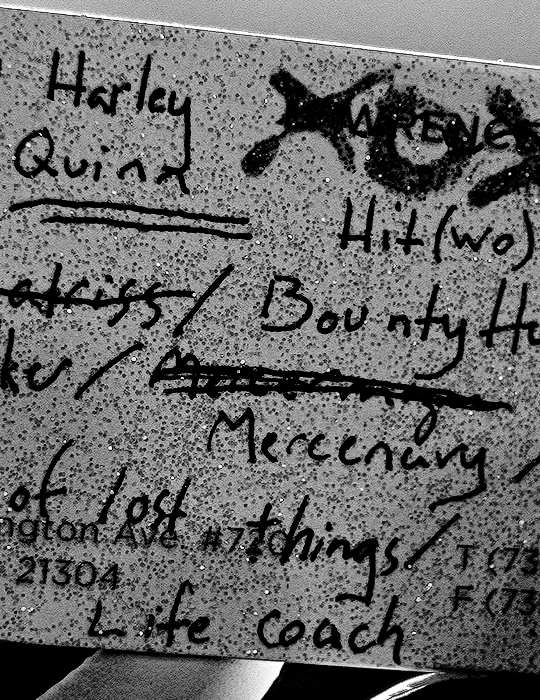 Harley
WRENC
Quinn
Hit(wo)
atriss / Bounty Hu
ker / 
Mercenary /
of lost things /
ngton Ave. #7
21304
T (73
F (73
Life coach